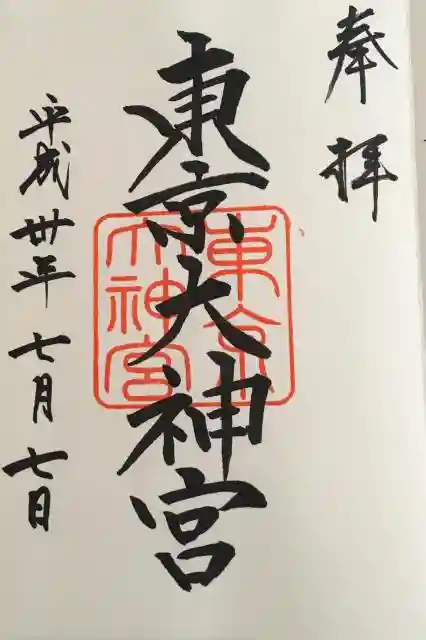 奉拝
東京大神宮
東京大神宮
平成卅年七月七日